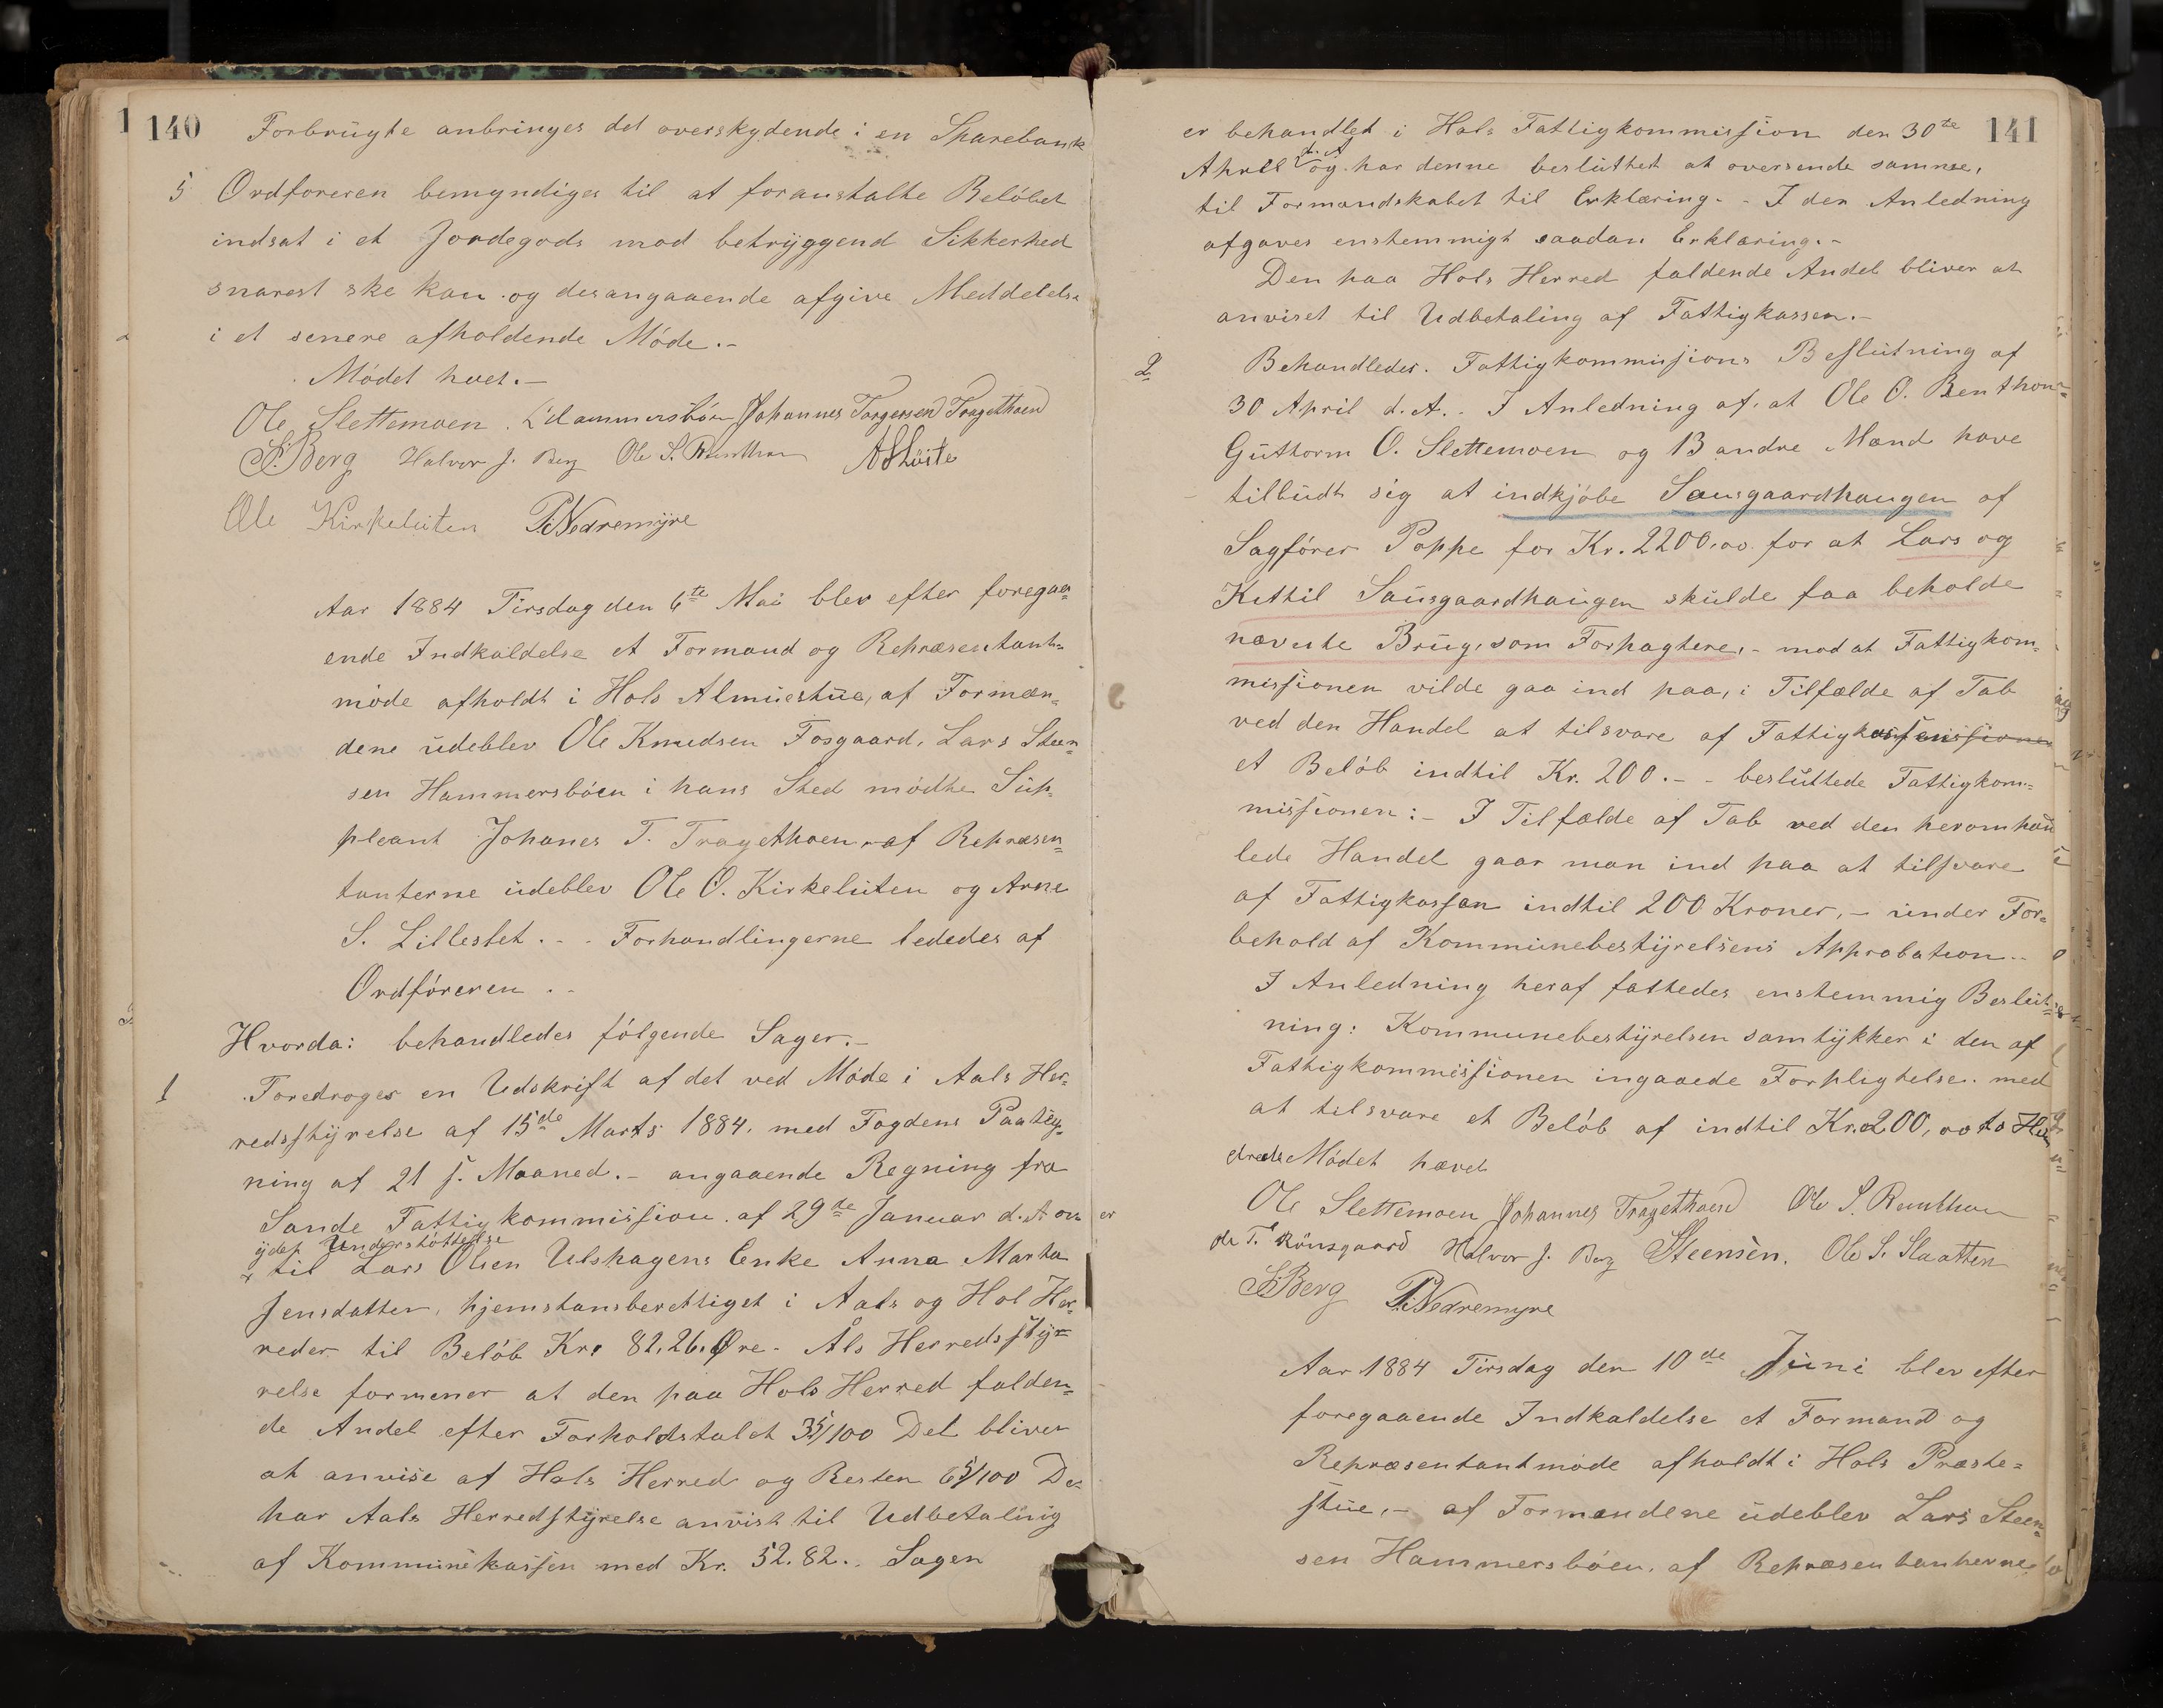 140
Forbrügte anbringes det overskydende i en Sparebank
5 Ordføreren bemyndiges til at foranstalte Beløbet
indsat i et Jordegods mod betrÿggend Sikkerhed
snarest ske kan og desangaaende afgive Meddelelse
i et senere afholdende Møde.-
Mødet hvet.-
Ole Slettemoen. L. Hammersbøen Johannes Torgersen Tragethoen
S. Berg Halvor J. Berg Ole S. Runthon
Ole Kirkelüten P. Nedremÿre
Aar 1884 Tirsdag den 6te Mai blev efter foregaa=
ende Indkaldelse et Formand og Repræsentant=
møde afholdt i Hols Almüestüe, af Formæn=
dene üdeblev Ole Knudsen Fosgaard, Lars Steen=
sen Hammersbøen i hans Sted mødte Süp=
pleant Johanes T. Tragethoen - af Repræsen=
tanterne üdeblev Ole O. Kirkelüten og Arne
S. Lilleslet. - . Forhandlingerne lededes af
Ordføreren . -
Hvorda: behandledes følgende Sager.-
1 Foredroges en Udskrift af det ved Møde i Aals Her=
redsstÿrelse af 15de Marts 1884, med Fogdens Paateg=
ning af 21 s. Maaned. - angaaende Regning fra
Sande Fattigkommission af 29de Januar d. A over
ÿdet Understøttelse
til Lars Olsen Ulshagens Enke Anna Marta
Jensdatter, hjemstansberettiget i Aals og Hol Her=
reder til Beløb Kr. 82,26. Øre - Åls Herredsstÿ=
relse formener at den paa Hols Herred falden=
de Andel efter Forholdstalet 35/100 Del bliver
at anvise af Hols Herred og Resten 65/100 De=
har Aals Herredstÿrelse anvist til Udbetaling
af Kommünekassen med Kr. 52.82.. Sagen
141
er behandlet i Hols Fattigkommission den 30te
d. A
April og har denne beslüttet at oversende samme,
til Formandskabet til Erklæring. - I den Anledning
afgaves enstemmigt saadan Erklæring.-
Den paa Hols Herred faldende Andel bliver at
anviset til Udbetaling af Fattigkassen.-
2 Behandledes. Fattigkommissions Beslütning af
30 April d. A. - I Anledning af. at Ole O. Benthon=
Güttorm O. Slettemoen og 13 andre Mænd have
tilbüdt sig at indkjøbe Sausgaardhaugen af
Sagfører Poppe for Kr. 2200,00 for at Lars og
Kittil Saüsgaardhaügen skülde faa beholde
nævnte Brüg, som Forpagtere, - mod at Fattigkom=
missionen vilde gaa ind paa, i Tilfælde af Tab
ved den Handel at tilsvare af Fattigkassen
et Beløb indtil Kr. 200. - - beslüttede Fattigkom=
missionen: - I Tilfælde af Tab ved den heromhan
lede Handel gaar man ind paa at tilsvare
af Fattigkassen indtil 200 Kroner, - ünder For=
behold af Kommünebestÿrelsens Approbation -
I Anledning heraf fattedes enstemmig Beslüt=
ning: Kommunebestÿrelsen samtÿkker i den af
Fattigkommissionen ingaaede Forpligtelse. med
at tilsvare et Beløb af indtil Kr. 200,00 to Hün
drede Mødet hævet
Ole Slettemoen Johannes Tragethoen Ole S. Runthon
Ole T. Rønsgaard Halvor J. Berg Steensen. Ole S. Slaatten
S. Berg P. Nedremyre
Aar 1884 Tirsdag den 10de Jüni blev efter
foregaaende Indkaldelse et Formand og
Repræsentantmøde afholdt i Hols Præste=
stüe, - af Formændene üdeblev Lars Steen=
sen Hammersbøen, af Repræsentanterne